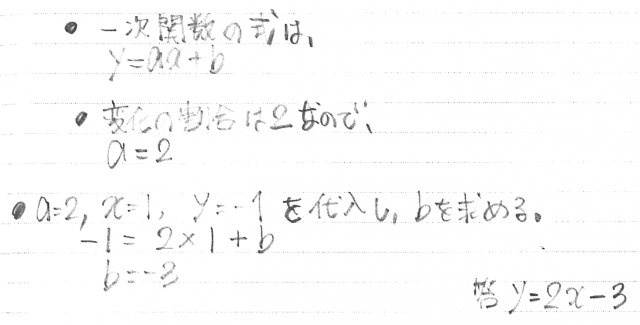 ・一次関数の式は、
y=ax+b
・変化の割合は2なので、
a=2
・a=2, x=1, y=-1 を代入し, bを求める。
-1=2×1+b
b=-3
答 y=2x-3